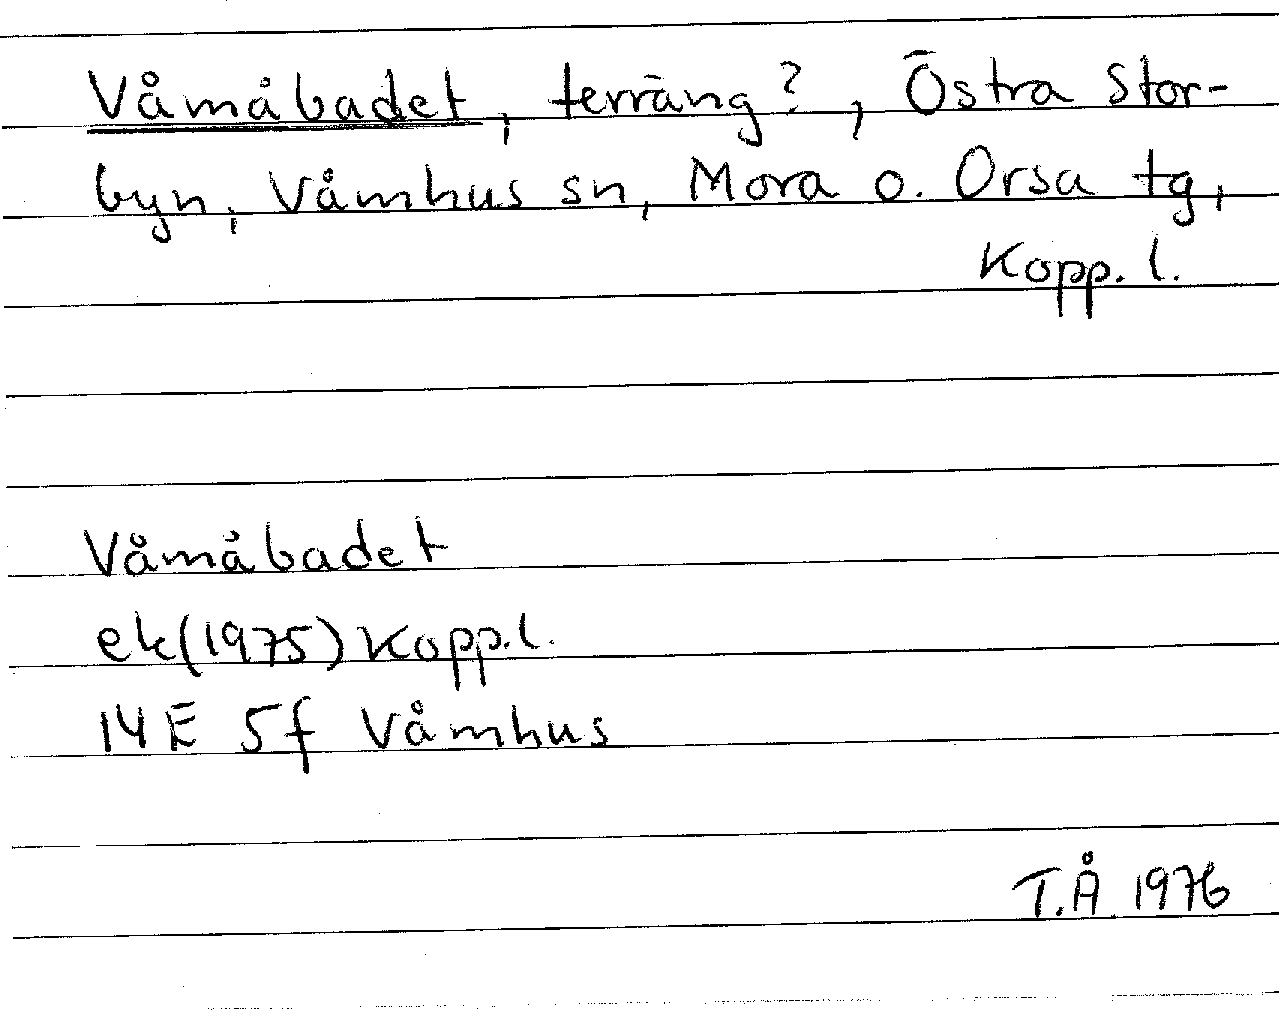 Våmåbadet, terräng?, Östra Stor-
byn, Våmhus sn, Mora o. Orsa tg,
Kopp. l.
Våmåbadet
ek(1975) Kopp.l.
14E 5f Våmhus
T.Å 1976